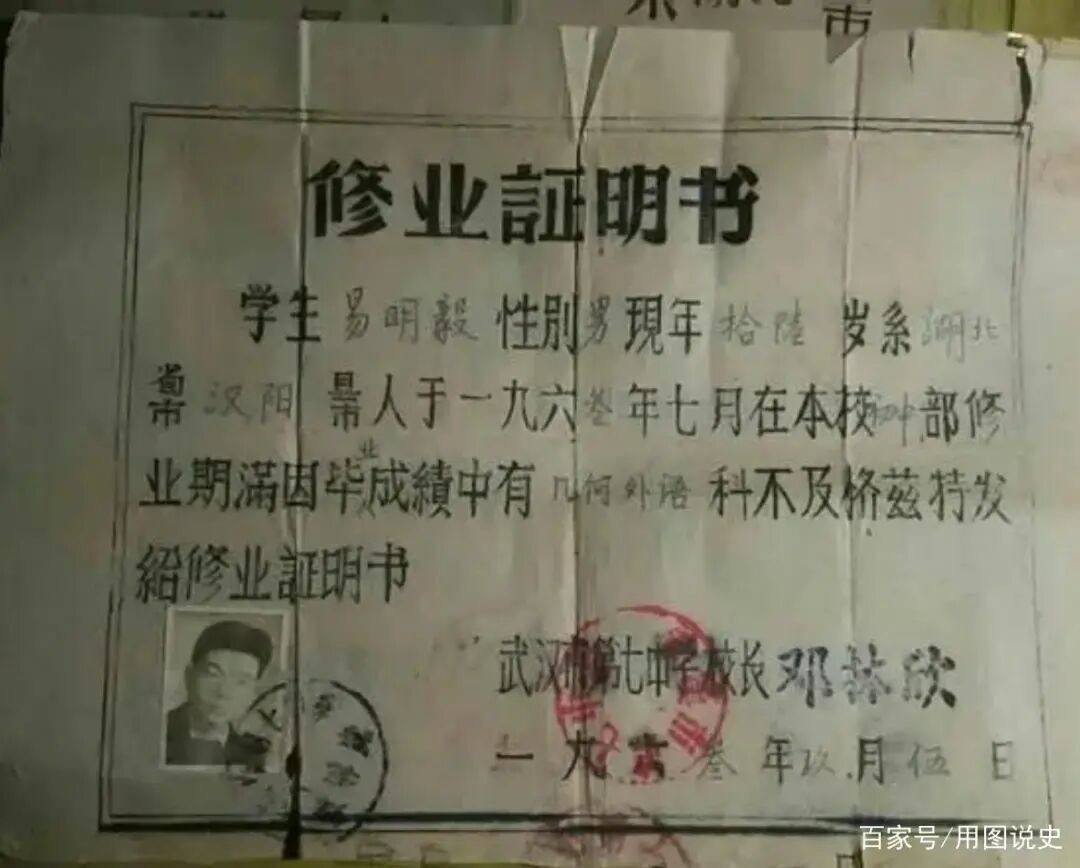 市
修业証明书
学生易明毅 性别男现年拾陆岁系湖北
省市汉阳县市人于一九六叁年七月在本校初中部修
业期满因毕业成績中有几何外语科不及格兹特发
給修业証明书
武汉市第七中学校长邓林欣
一九六叁年玖月伍日
百家号/用图说史